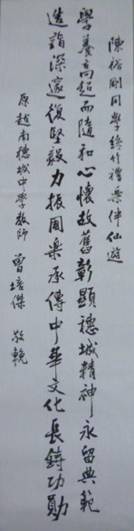 陳裕剛同學終於禮樂伴仙遊
學養高超而隨和心懷故舊彰顯穗城精神永留典範
造詣深邃復堅毅力拔國樂承傳中華文化長鑄功勛
原越南穗城中學教師
曾培傑 敬輓